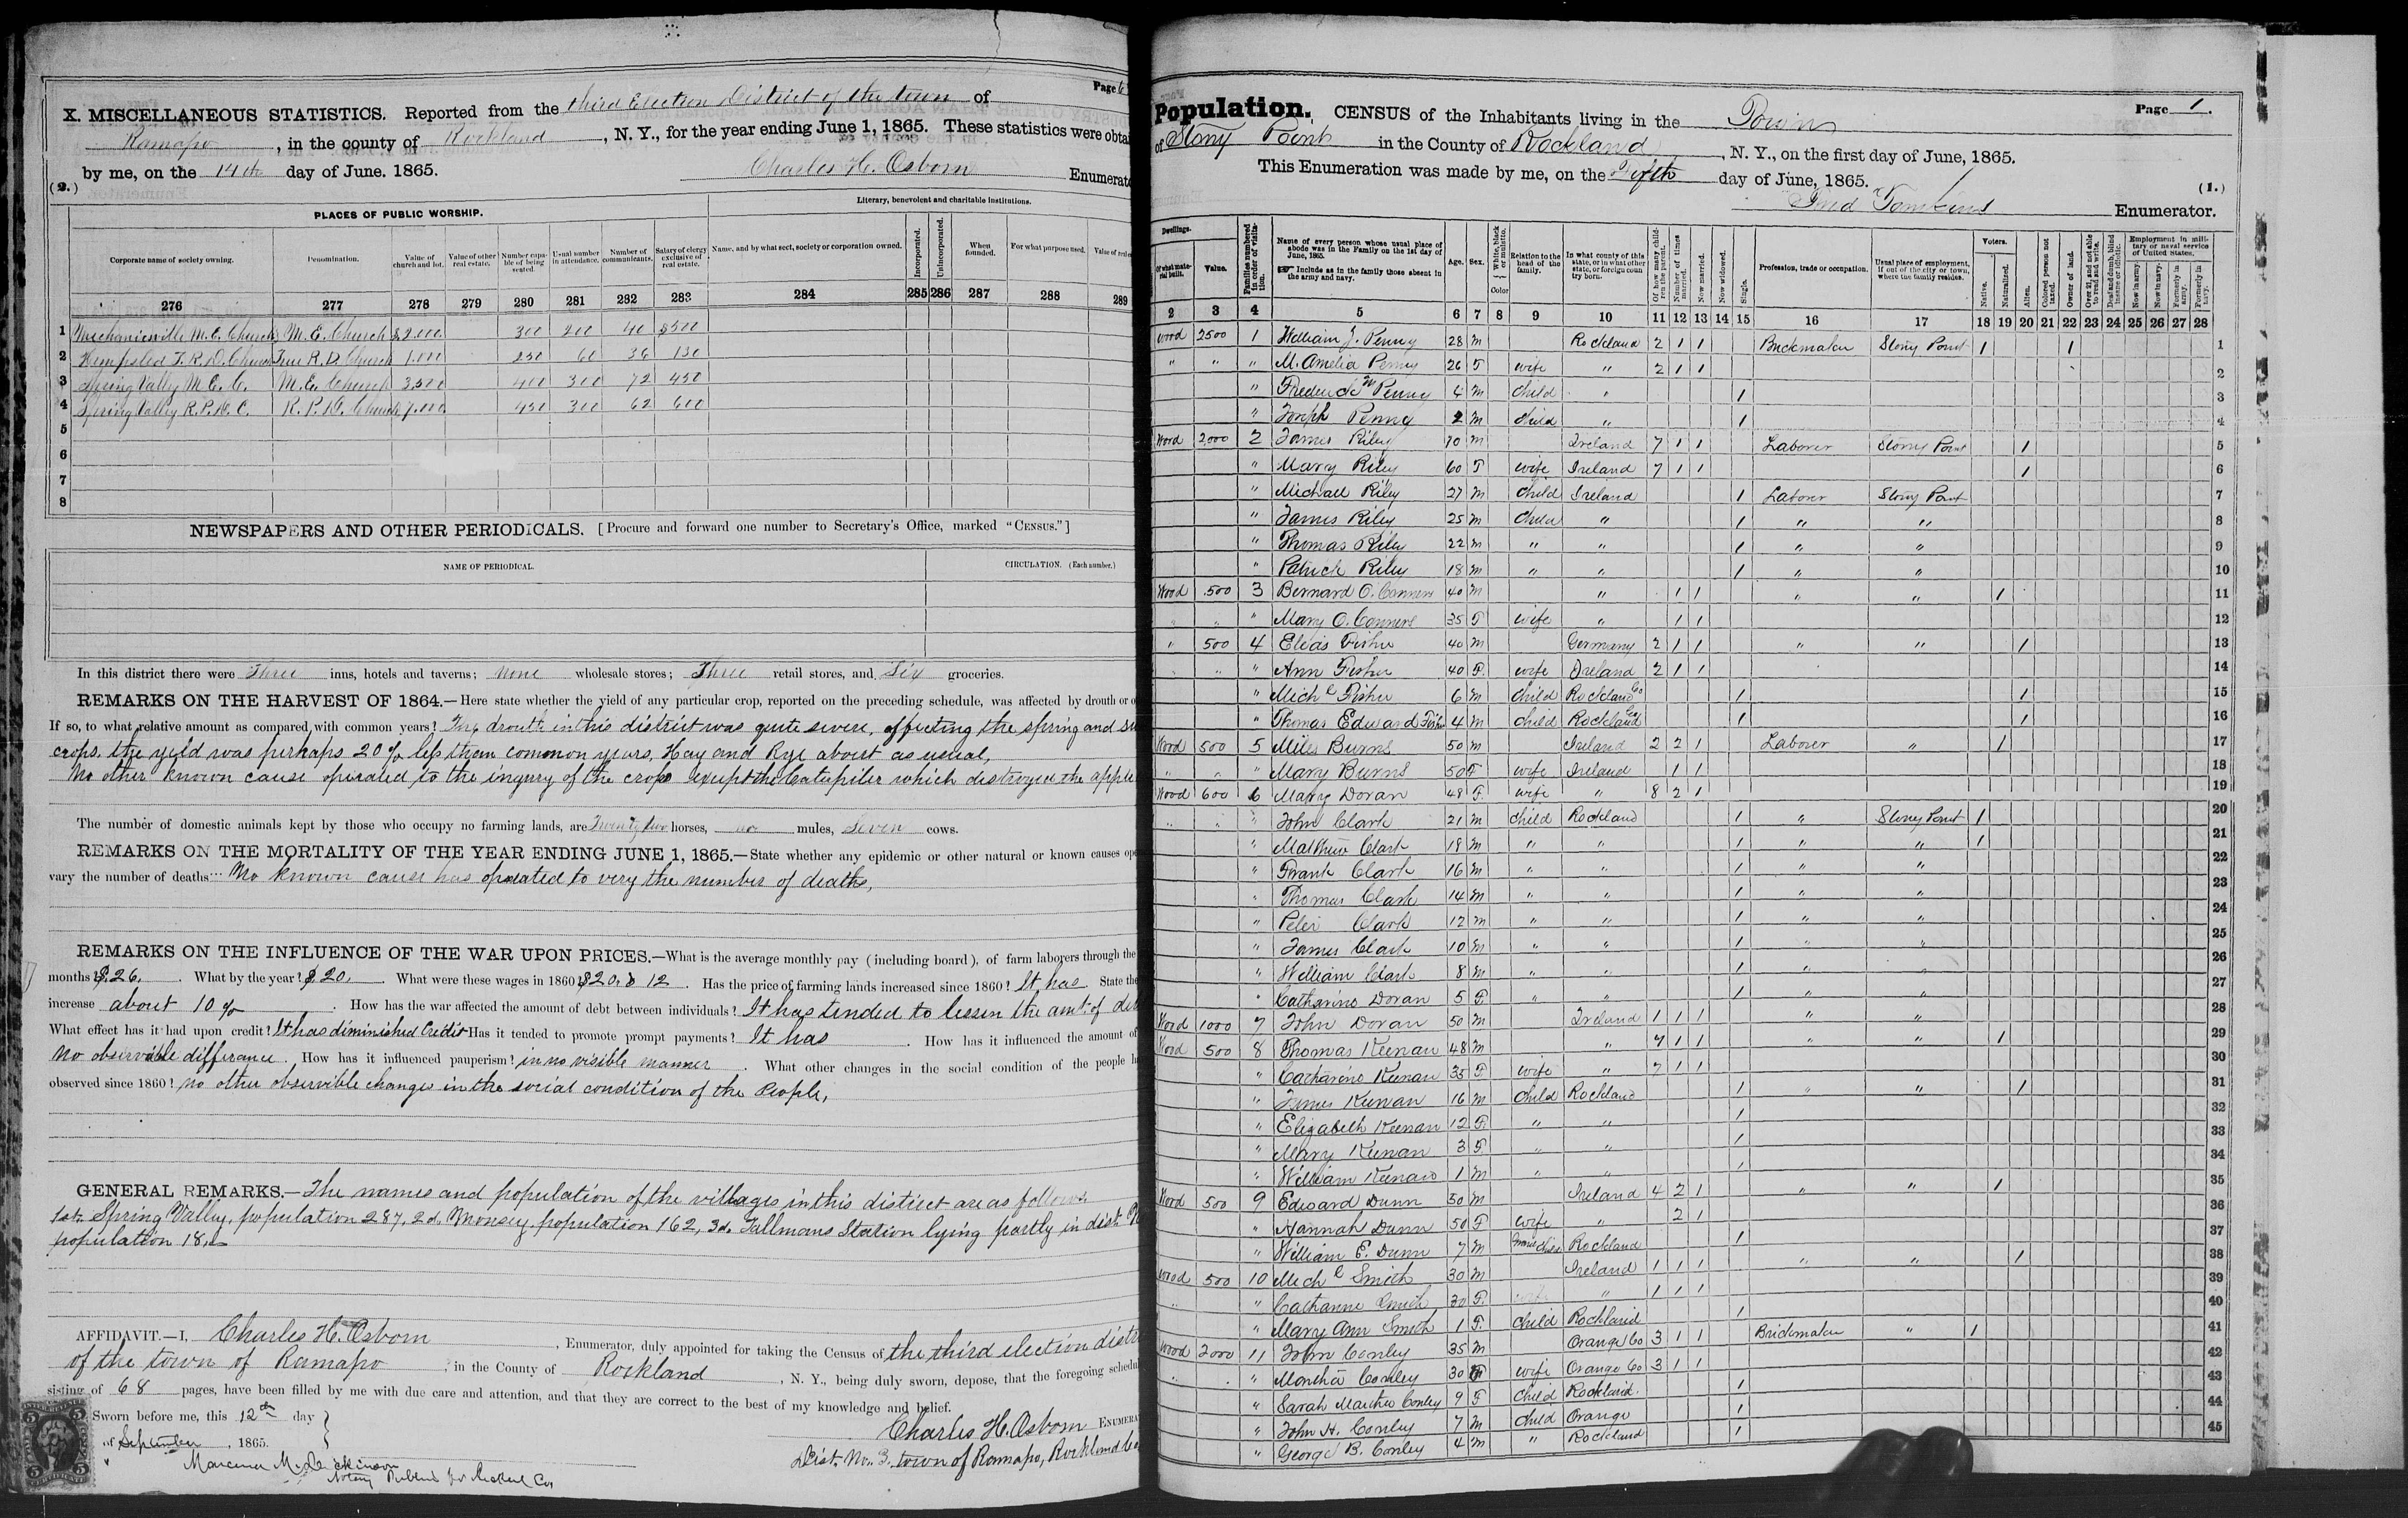 Page 6
X. MISCELLANEOUS STATISTICS. Reported from the third Election District of the town of
Ramapo, in the county of Rockland, N. Y., for the year ending June 1, 1865. These statistics were obtai
by me, on the 14th day of June. 1865. Charles H. Osborn Enumerat
(2.)
PLACES OF PUBLIC WORSHIP. Literary, benevolent and charitable institutions.
Corporate name of society owning. Denomination. Value of church and lot. Value of other real estate. Number capable of being seated. Usual number in attendance. Number of communicants. Salary of clergy exclusive of real estate. Name, and by what sect, society or corporation owned. Incorporated. Unincorporated. When founded. For what purpose used. Value of real
276 277 278 279 280 281 282 283 284 285 286 287 288 289
1 Mechanicsville M. E. Church M. E. Church $2.000 300 200 40 $500
2 Hempsted T. R. D. Church True R. D. Church 1.000 250 60 36 130
3 Spring Valley M. E. C. M. E. Church 3,500 400 300 72 450
4 Spring Valley R. P. D. C. R. P. D. Church 7.000 450 300 62 600
5
6
7
8
NEWSPAPERS AND OTHER PERIODICALS. [Procure and forward one number to Secretary's Office, marked "CENSUS."]
NAME OF PERIODICAL. CIRCULATION. (Each number.)
In this district there were Three inns, hotels and taverns; none wholesale stores; Three retail stores, and Six groceries.
REMARKS ON THE HARVEST OF 1864.—Here state whether the yield of any particular crop, reported on the preceding schedule, was affected by drouth or o
If so, to what relative amount as compared with common years? The drouth in this district was quite severe, affecting the spring and su
crops, the yield was perhaps 20 % less them common years, Hay and Rye about as usual,
No other known cause operated to the ingury of the crops except the Catepiler which distroyed the apple
The number of domestic animals kept by those who occupy no farming lands, are Twenty two horses, no mules, Seven cows.
REMARKS ON THE MORTALITY OF THE YEAR ENDING JUNE 1, 1865.—State whether any epidemic or other natural or known causes ope
vary the number of deaths No known cause has operated to very the number of deaths,
REMARKS ON THE INFLUENCE OF THE WAR UPON PRICES.—What is the average monthly pay (including board), of farm laborers through the
months? $26. What by the year? $20. What were these wages in 1860? $20. & 12. Has the price of farming lands increased since 1860? It has State the
increase about 10 %. How has the war affected the amount of debt between individuals? It has tended to lessen the amt. of deb
What effect has it had upon credit? It has diminished Credit Has it tended to promote prompt payments? It has. How has it influenced the amount of
No observable differance. How has it influenced pauperism? in no visible manner. What other changes in the social condition of the people h
observed since 1860? no other observible changes in the social condition of the People,
GENERAL REMARKS.—The names and population of the villages in this district are as follows
1st. Spring Valley, population 287, 2d. Monsey, population 162, 3d. Tallmans Station lying partly in dist.
population 18,
AFFIDAVIT.—I, Charles H. Osborn, Enumerator, duly appointed for taking the Census of the third election distri
of the town of Ramapo, in the County of Rockland, N. Y., being duly sworn, depose, that the foregoing schedul
sisting of 68 pages, have been filled by me with due care and attention, and that they are correct to the best of my knowledge and belief.
Sworn before me, this 12th day
of September, 1865.
Charles H. Osborn ENUMERA
Dist. No. 3. town of Ramapo, Rockland Co
Notary Public
Population. CENSUS of the Inhabitants living in the Town Page 1.
of Stony Point in the County of Rockland, N. Y., on the first day of June, 1865.
This Enumeration was made by me, on the Fifth day of June, 1865.
(1.)
Fred Tomkins Enumerator.
Dwellings. Of what material built. Value. Families numbered in order of visitation. Name of every person whose usual place of abode was in the Family on the 1st day of June, 1865. Include as in the family those absent in the army and navy. Age. Sex. Color White, black or mulatto. Relation to the head of the family. In what county of this state, or in what other state, or foreign country born. Of how many children the parent. Number of times married. Now married. Now widowed. Single. Profession, trade or occupation. Usual place of employment, if out of the city or town, where the family resides. Voters. Native. Naturalized. Alien. Colored person not taxed. Owner of land. Over 21, and not able to read and write. Deaf and dumb, blind insane or idiotic. Employment in military or naval service of United States. Now in army. Now in navy. Formerly in army. Formerly in navy.
2 3 4 5 6 7 8 9 10 11 12 13 14 15 16 17 18 19 20 21 22 23 24 25 26 27 28
Wood 2500 1 William J. Penny 28 M Rockland 2 1 1 Brickmaker Stony Point 1 1 1
" " " M. Amelia Penny 26 F wife " 2 1 1 2
" Frederick W Penny 4 M child " 1 3
" Joseph Penny 2 M child " 1 4
Wood 2000 2 James Riley 70 M Ireland 7 1 1 Laborer Stony Point 1 5
" Mary Riley 60 F wife Ireland 7 1 1 1 6
" Michael Riley 27 M child Ireland 1 Laborer Stony Point 7
" James Riley 25 M child " 1 " " 8
" Thomas Riley 22 M " " 1 " " 9
" Patrick Riley 18 M " " 1 " " 10
Wood 500 3 Bernard O. Conners 40 M " 1 1 " " 1 11
" " " Mary O. Conners 35 F wife " 1 1 12
" 500 4 Elias Fisher 40 M Germany 2 1 1 " " 1 13
" " " Ann Fisher 40 F wife Ireland 2 1 1 14
" Mich l Fisher 6 M child Rockland Co 1 1 15
" Thomas Edward Fisher 4 M child Rockland Co 1 1 16
Wood 500 5 Miles Burns 50 M Ireland 2 2 1 Laborer " 1 17
" " " Mary Burns 50 F wife Ireland 1 1 18
Wood 600 6 Mary Doran 48 F wife " 8 2 1 19
" " " John Clark 21 M child Rockland 1 " Stony Point 1 20
" Mathew Clark 18 M " " 1 " " 1 21
" Frank Clark 16 M " " 1 " " 22
" Thomas Clark 14 M " " 1 " " 23
" Peter Clark 12 M " " 1 " " 24
" James Clark 10 M " " 1 " " 25
" William Clark 8 M " " 1 " " 26
" Catharine Doran 5 F " " 1 " " 27
Wood 1000 7 John Doran 50 M Ireland 1 1 1 " " 28
Wood 500 8 Thomas Keenan 48 M " 7 1 1 " " 1 29
" Catharine Keenan 35 F wife " 7 1 1 30
" James Keenan 16 M child Rockland 1 " " 1 31
" Elizabeth Keenan 12 F " " 1 32
" Mary Keenan 3 F " " 1 33
" William Keenan 1 M " " 1 34
Wood 500 9 Edward Dunn 50 M Ireland 4 2 1 " " 1 35
" Hannah Dunn 50 F wife " 2 1 36
" William E. Dunn 7 M Grand child Rockland 1 37
Wood 500 10 Mich l Smith 30 M Ireland 1 1 1 " " 1 38
" " Catharine Smith 30 F wife " 1 1 1 39
" Mary Ann Smith 1 F child Rockland 1 40
Wood 2000 11 John Conley 35 M Orange Co 3 1 1 Brickmaker " 1 41
" " Martha Conley 30 F wife Orange Co 3 1 1 42
" Sarah Martha Conley 9 F child Rockland 1 43
" John H. Conley 7 M child Orange 1 44
" George B. Conley 4 M " Rockland 1 45